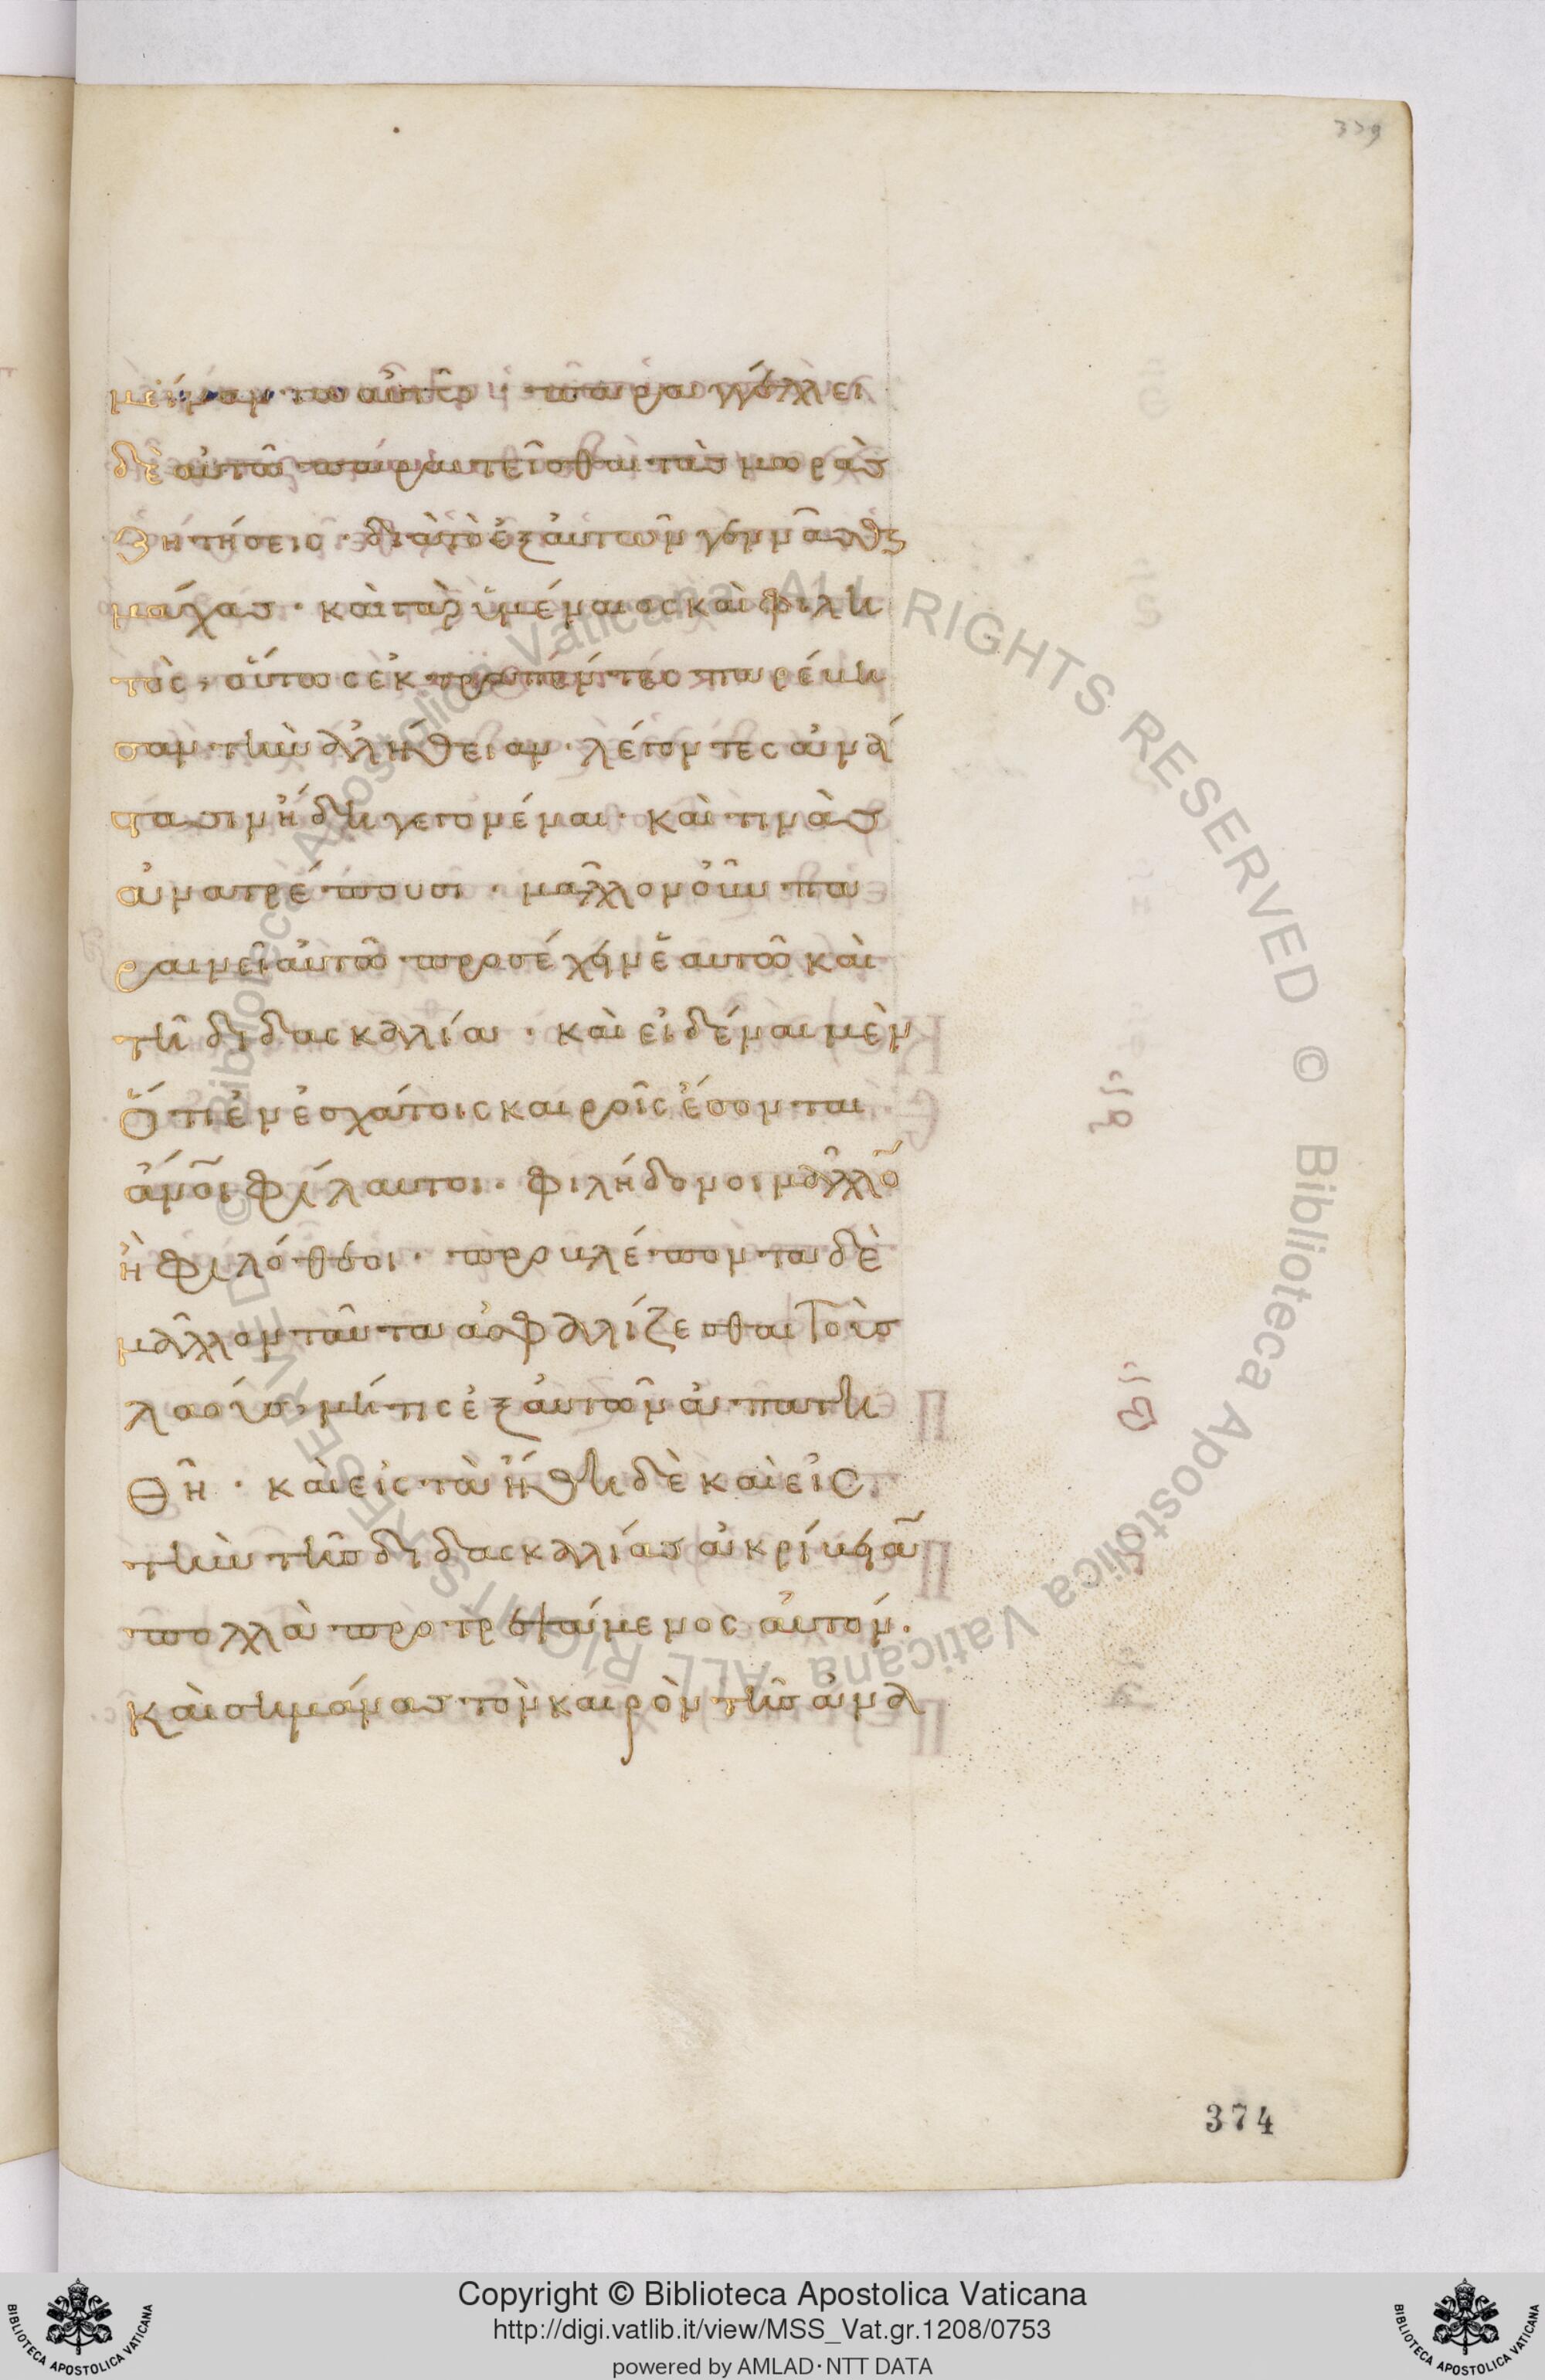 339
μείναντα αὐτὸν· παραγγέλλει
δὲ αὐτῶ παραιτεῖσθαι τὰς μωρὰς
ζητήσεις· διὰ τὸ ἐξ αὐτῶν γεννᾶσθαι
μάχας· καὶ γὰρ ὑμέναιος καὶ φιλη
τὸς, οὕτως ἐκτραπέντες παρέβη
σαν τὴν ἀλήθειαν· λέγοντες ἀνά
στασιν ἤδη γεγονέναι· καὶ τινὰς
ἀνατρέπουσι· μᾶλλον οὖν πα
ραινεῖ αὐτῶ προσέχειν ἑαυτῶ καὶ
τῆ διδασκαλία· καὶ εἰδέναι μὲν
ὅτι ἐν ἐσχάτοις καιροῖς ἔσονται
ἄνοι φίλαυτοι· φιλήδονοι μᾶλλον
ἢ φιλόθεοι· προβλέποντα δὲ
μᾶλλον ταῦτα ἀσφαλίζεσθαι τοὺς
λαοὺς, μή τις ἐξ αὐτῶν ἀπατη
θῆ· καὶ εἰς τὰ ἤθη δὲ καὶ εἰς
τὴν τῆς διδασκαλίας ἀκρίβειαν
πολλὰ προτρεψάμενος αὐτόν·
καὶ σημάνας τὸν καιρὸν τῆς ἀνα
374
Copyright © Biblioteca Apostolica Vaticana
http://digi.vatlib.it/view/MSS_Vat.gr.1208/0753
powered by AMLAD·NTT DATA
BIBLIOTECA APOSTOLICA VATICANA
BIBLIOTECA APOSTOLICA VATICANA
© Biblioteca Apostolica Vaticana ALL RIGHTS RESERVED © Biblioteca Apostolica Vaticana ALL RIGHTS RESERVED